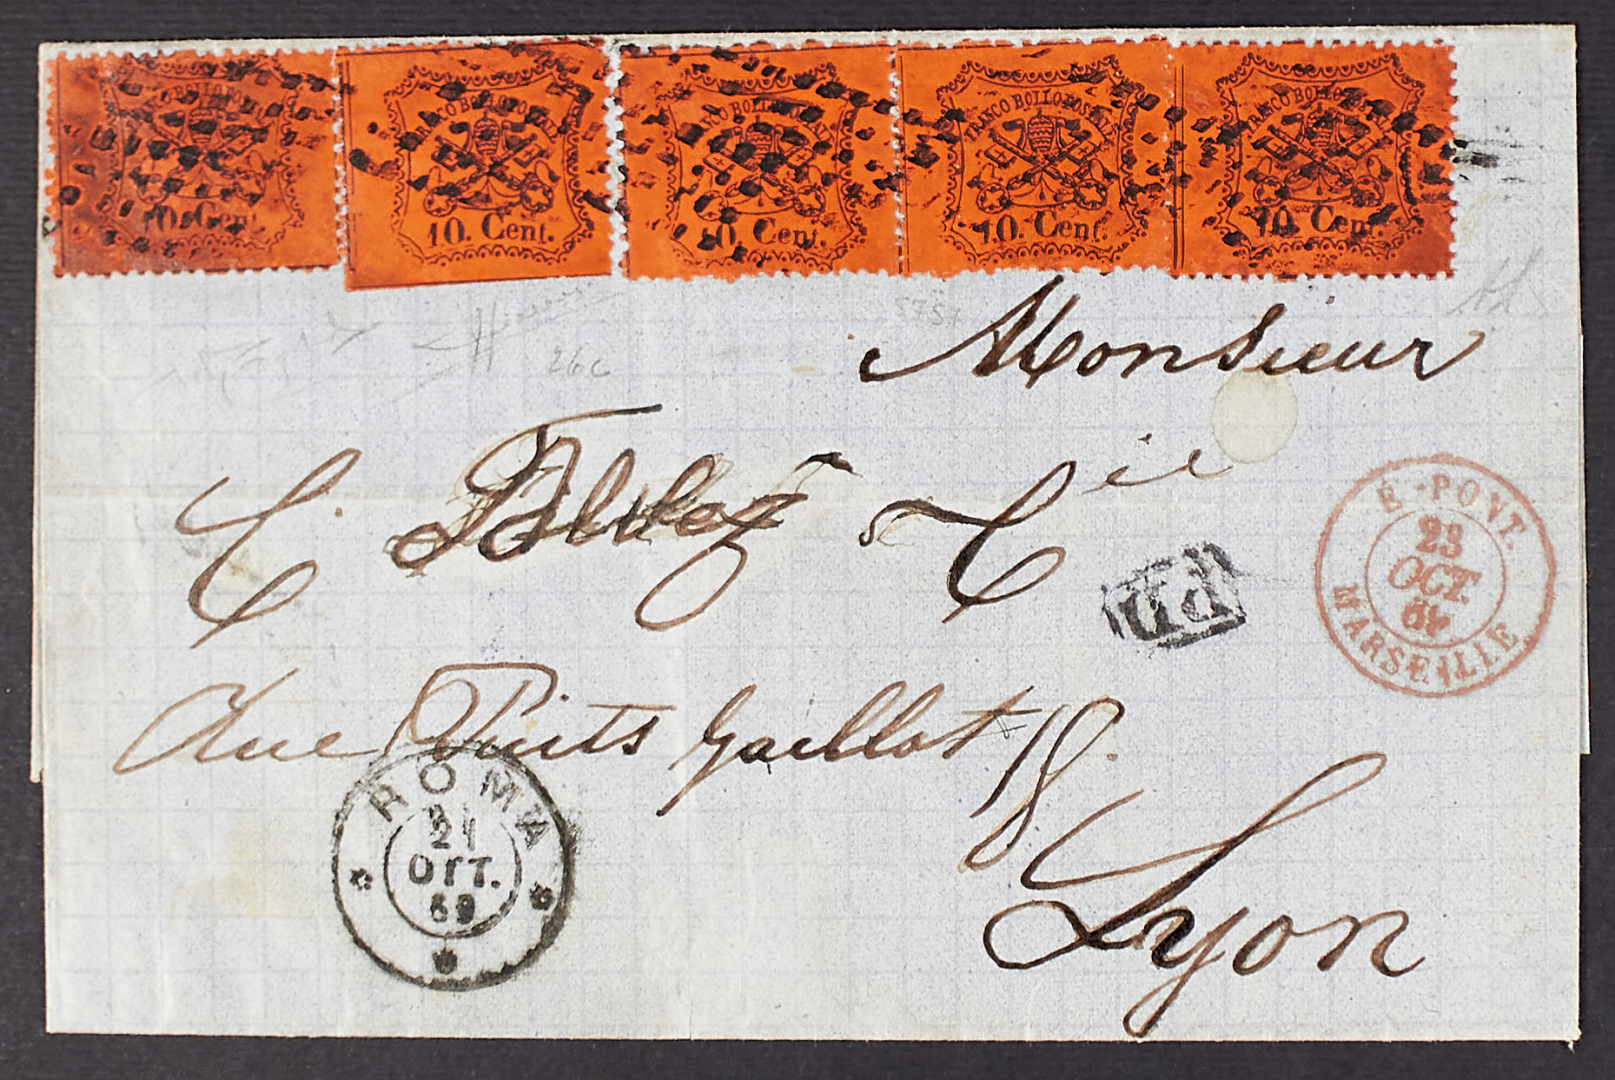 FRANCO BOLLO POSTALE
10. Cent.
FRANCO BOLLO POSTALE
10. Cent.
FRANCO BOLLO POSTALE
10. Cent.
FRANCO BOLLO POSTALE
10. Cent.
FRANCO BOLLO POSTALE
10. Cent.
5757
26c
Monsieur
C. & Cie
E.-PONT.
23
OCT.
MARSEILLE
PD
Rue Puits Gaillot 18.
ROMA
21
OTT.
69
Lyon